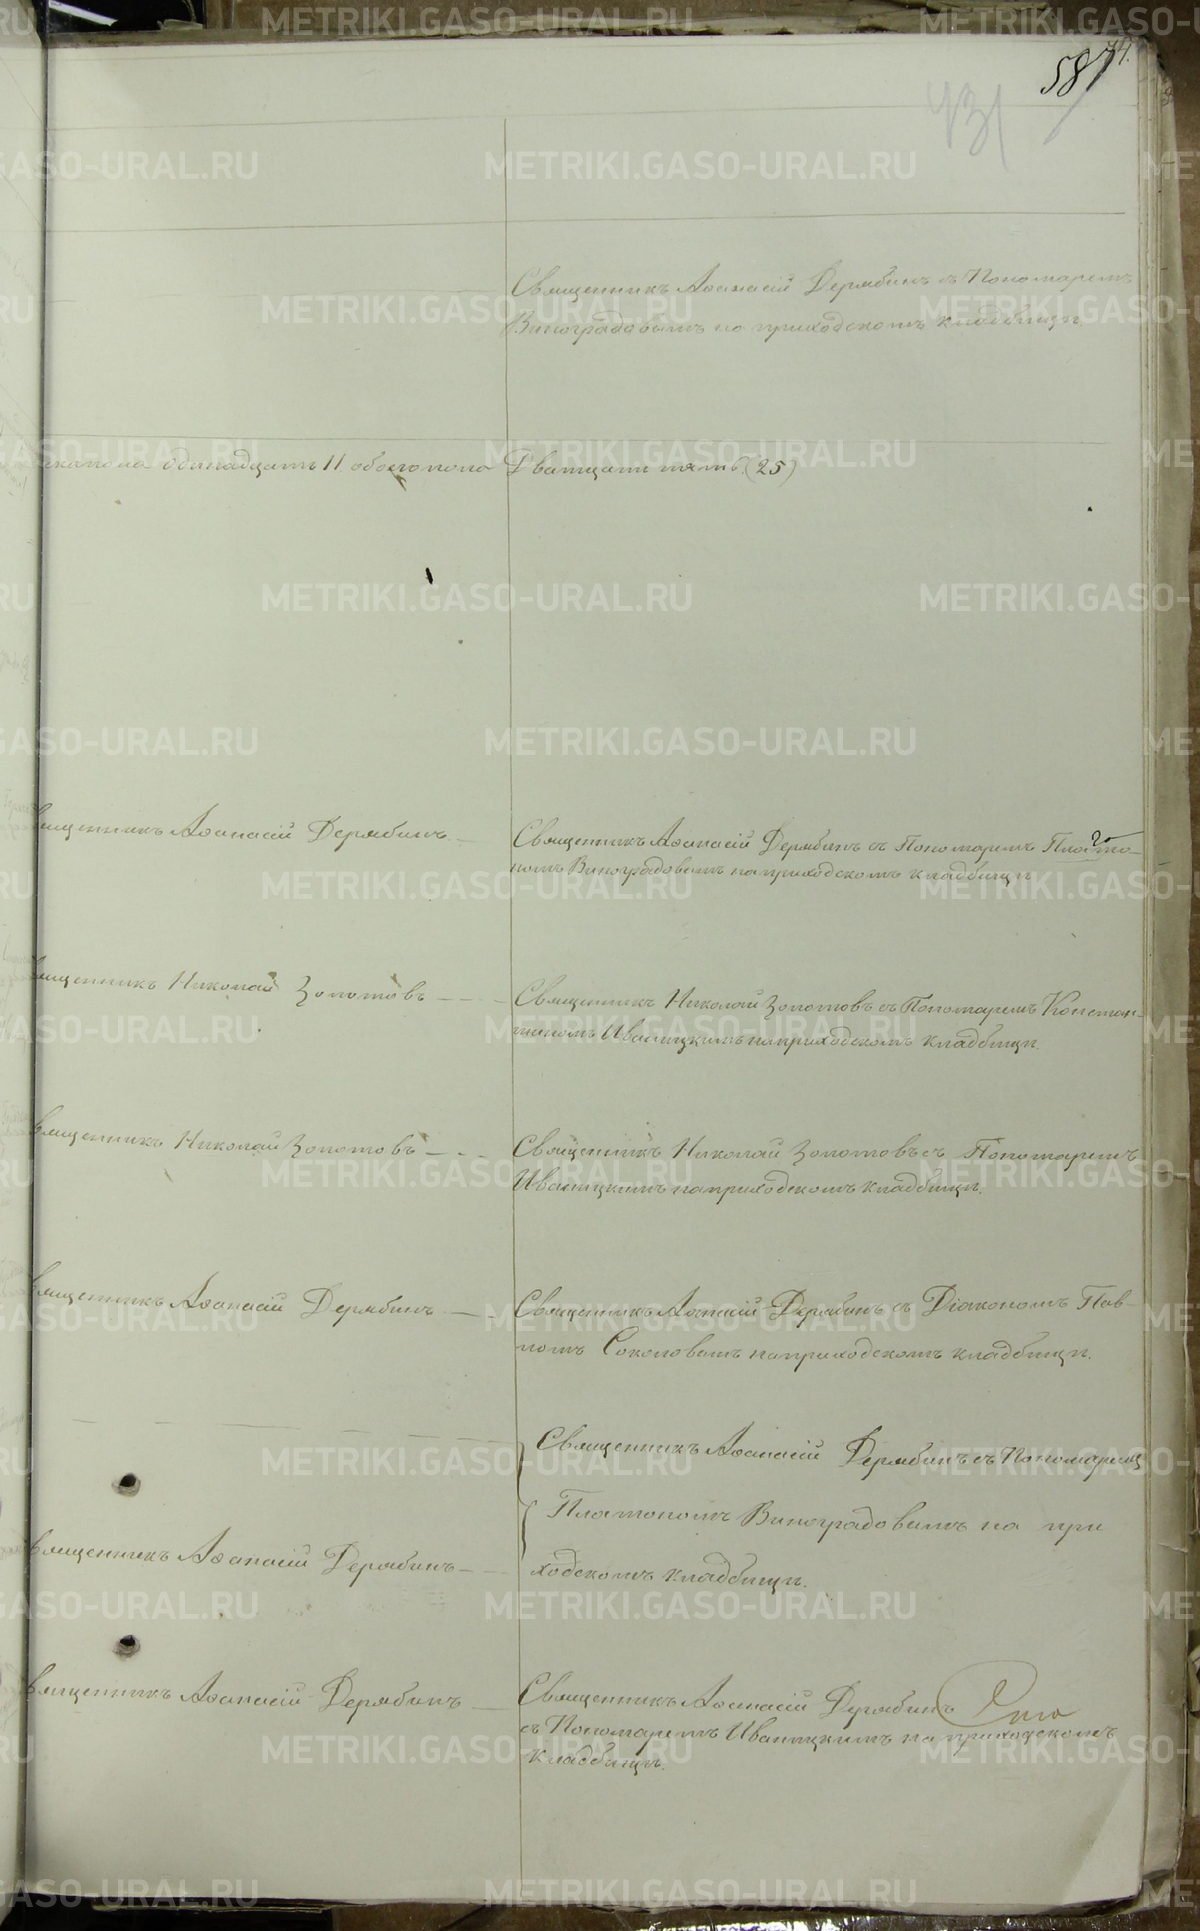 74.
587
431
Священникъ Аѳанасій Дерябинъ съ Пономаремъ
Виноградовымъ на приходскомъ кладбищѣ
женска пола одинадцать 11 обоего пола Дватцать пять (25)
Священникъ Аѳанасій Дерябинъ
Священникъ Аѳанасій Дерябинъ съ Пономаремъ Плато-
номъ Виноградовымъ на приходскомъ кладбищѣ
Священникъ Николай Золотовъ
Священникъ Николай Золотовъ съ Пономаремъ Констан-
тиномъ Иваницкимъ на приходскомъ кладбищѣ.
Священникъ Николай Золотовъ
Священникъ Николай Золотовъ съ Пономаремъ
Иваницкимъ на приходскомъ кладбищѣ.
Священникъ Аѳанасій Дерябинъ
Священникъ Аѳанасій Дерябинъ съ Діакономъ Пав-
ломъ Соколовымъ на приходскомъ кладбищѣ.
Священникъ Аѳанасій Дерябинъ съ Пономаремъ
Платономъ Виноградовымъ на при
Священникъ Аѳанасій Дерябинъ
ходскомъ кладбищѣ.
Священникъ Аѳанасій Дерябинъ
Священникъ Аѳанасій Дерябинъ
съ Пономаремъ Иваницкимъ на приходскомъ
кладбищѣ.
METRIKI.GASO-URAL.RU